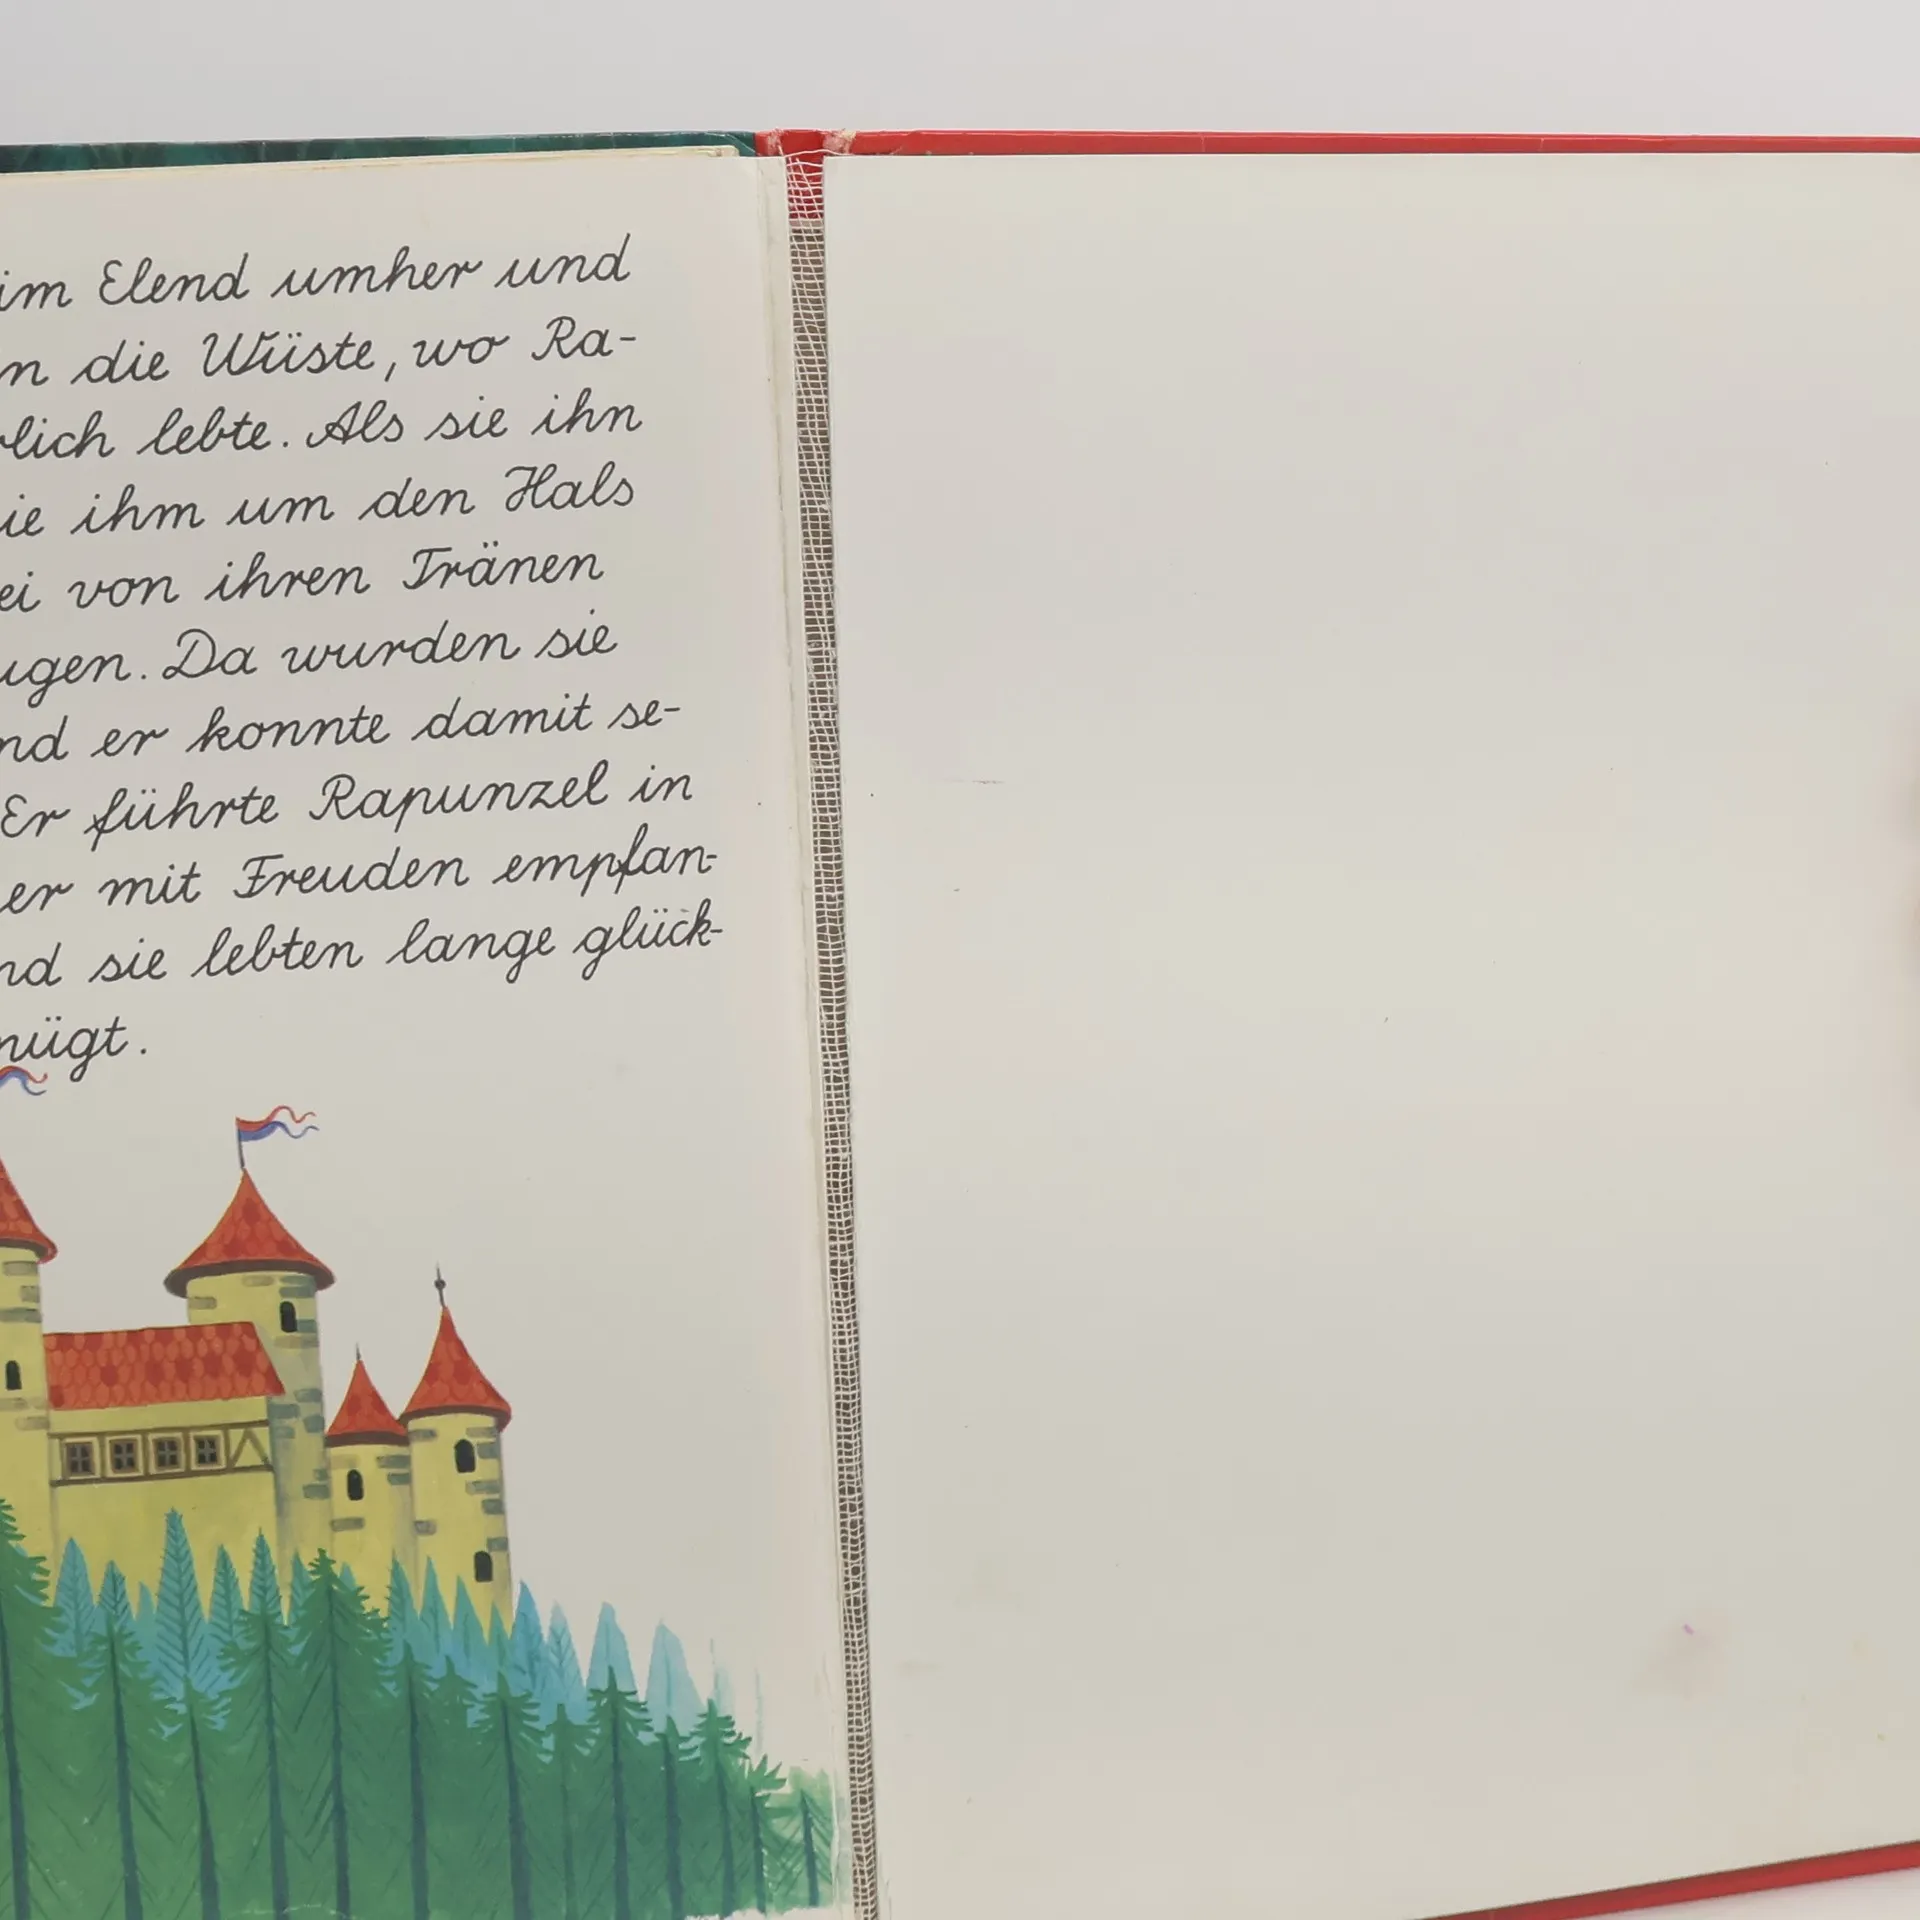 im Elend umher und
n die Wüste, wo Ra-
rlich lebte. Als sie ihn
ie ihm um den Hals
ei von ihren Tränen
ugen. Da wurden sie
nd er konnte damit se-
Er führte Rapunzel in
er mit Freuden empfan-
nd sie lebten lange glück-
nügt.